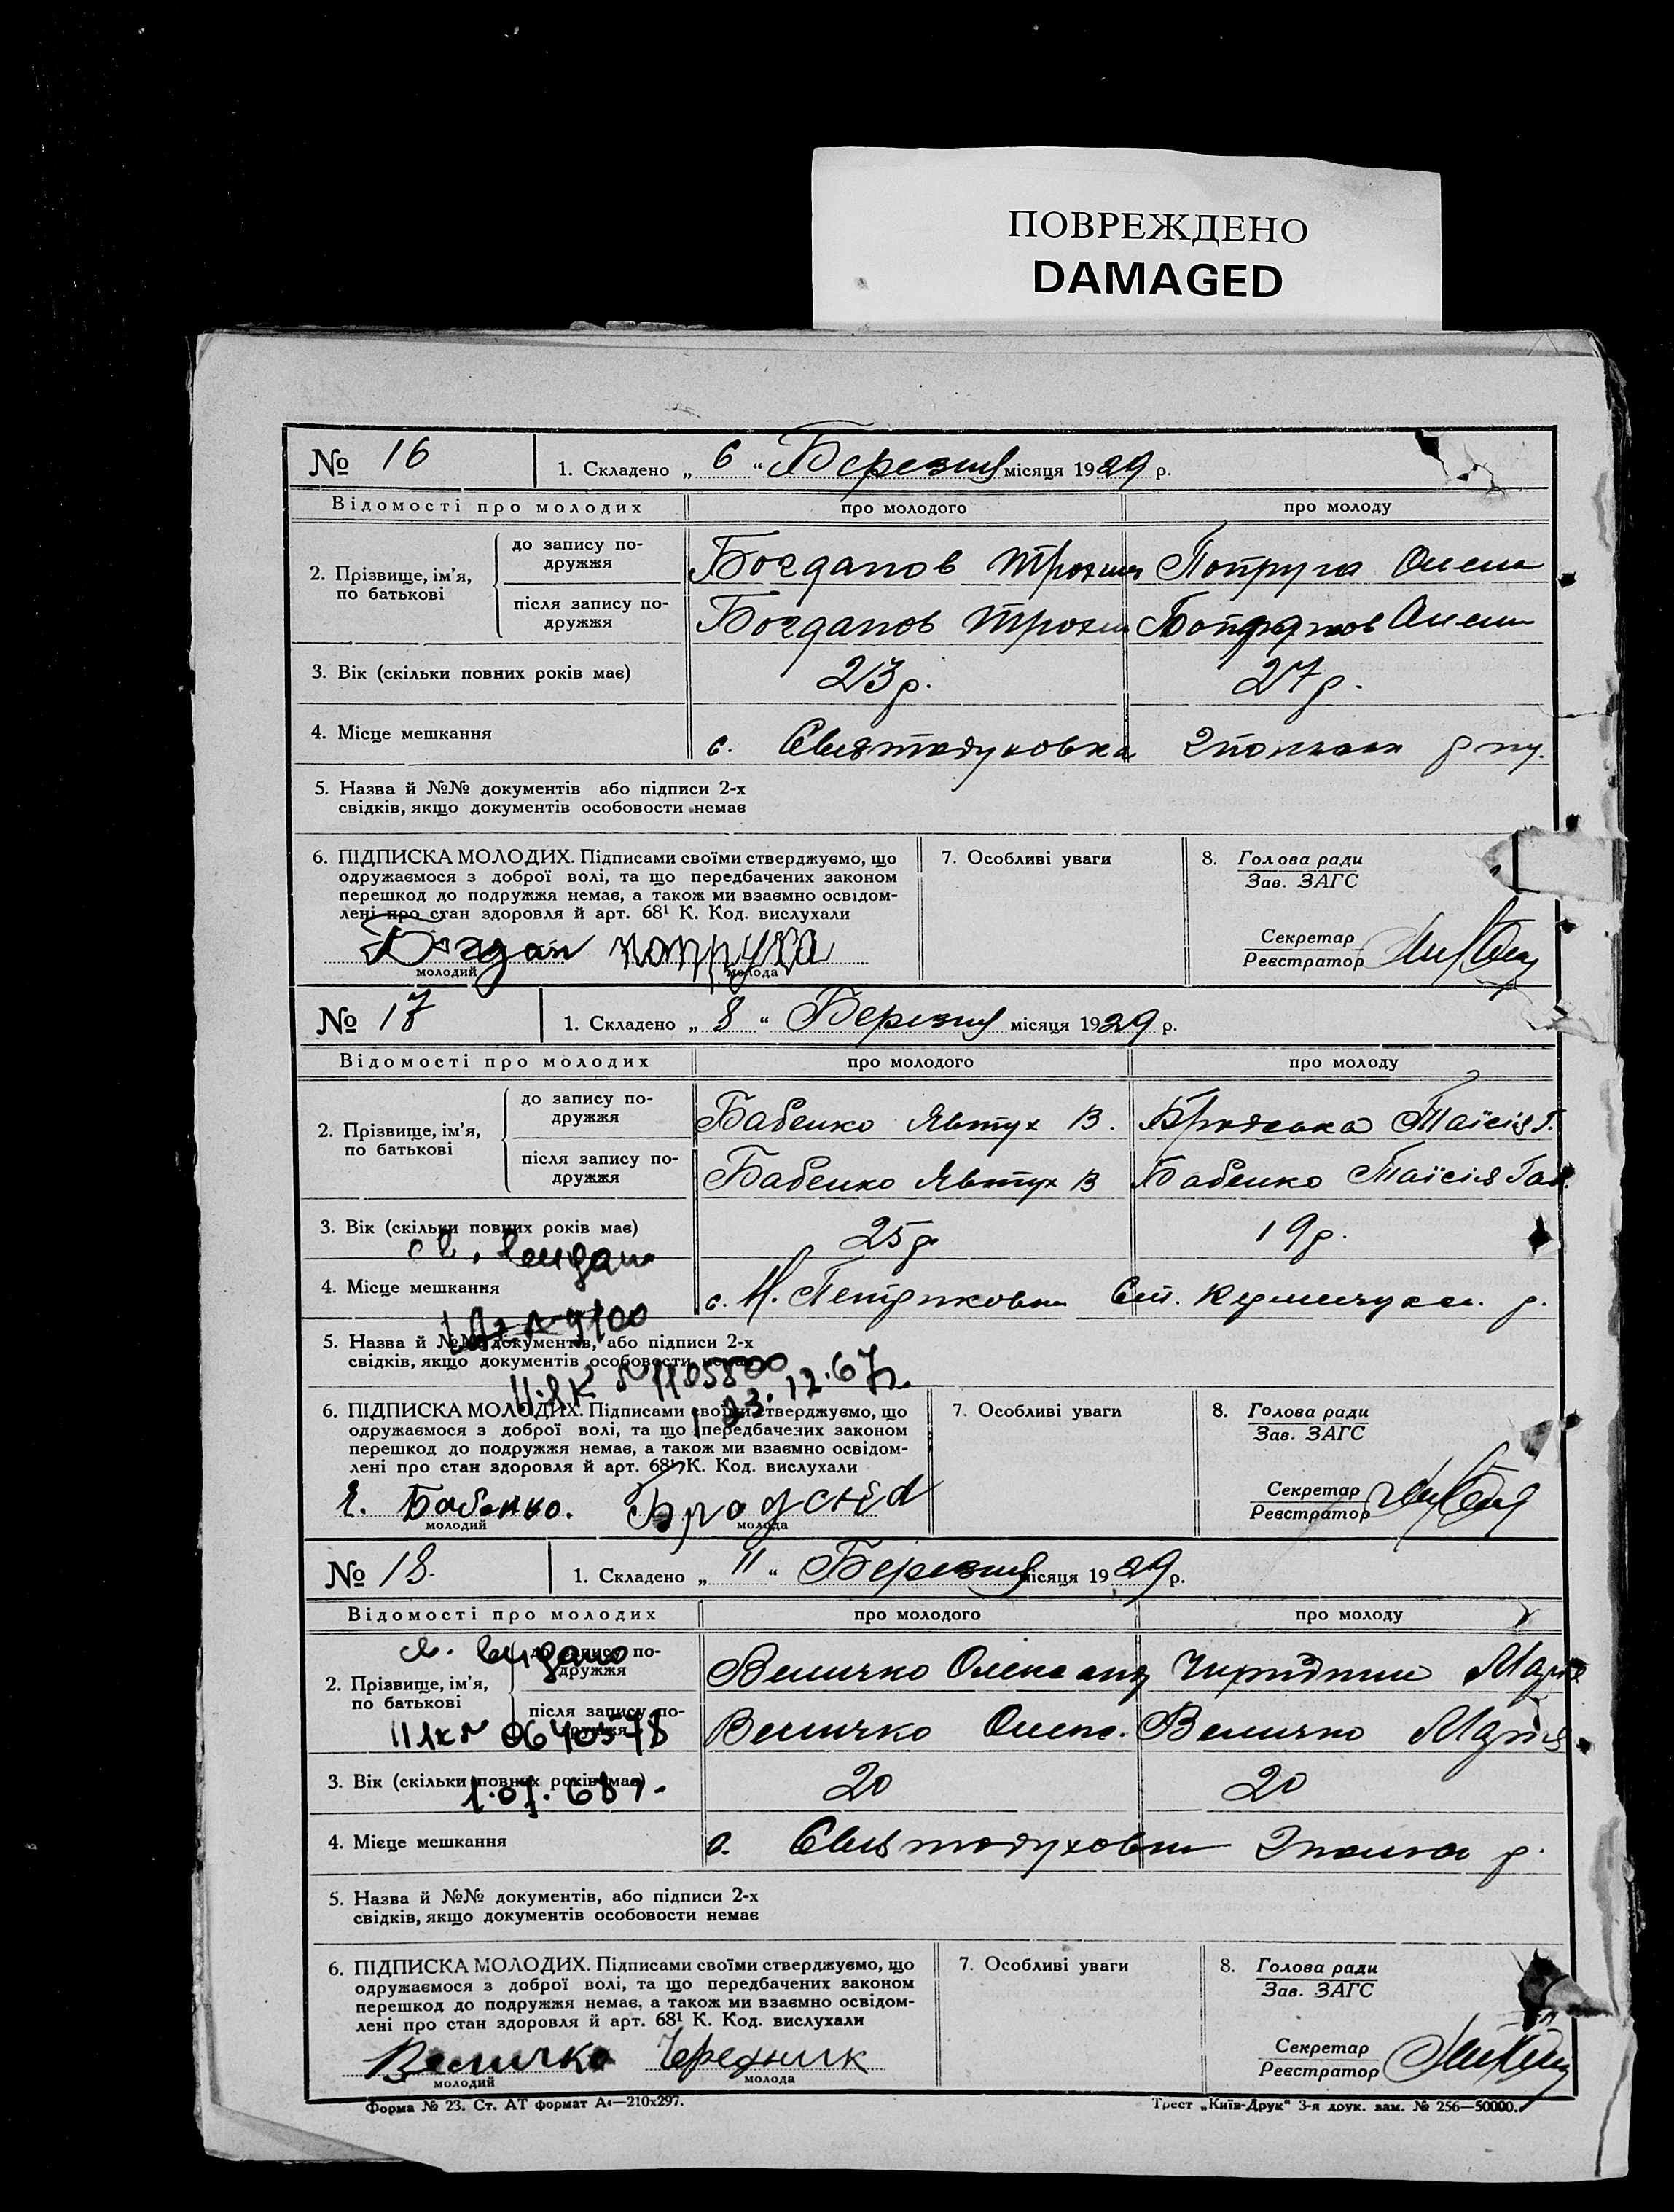 ПОВРЕЖДЕНО
DAMAGED
№ 16
1. Складено „ 6 “ Березня місяця 1929 р.
Відомості про молодих про молодого про молоду
2. Прізвище, ім’я, по батькові
до запису подружжя Богданов Трохим Попруга Олена
після запису подружжя Богданов Трохим Богданов Олена
3. Вік (скільки повних років має) 23 р. 27 р.
4. Місце мешкання с. Святодуховка
5. Назва й №№ документів або підписи 2-х
свідків, якщо документів особовости немає
6. ПІДПИСКА МОЛОДИХ. Підписами своїми стверджуємо, що
одружаємося з доброї волі, та що передбачених законом
перешкод до подружжя немає, а також ми взаємно освідом-
лені про стан здоровля й арт. 68¹ К. Код. вислухали
Богдан попруга
молодий молода
7. Особливі уваги
8. Голова ради
Зав. ЗАГС
Секретар
Реєстратор
№ 17
1. Складено „ 8 “ Березня місяця 1929 р.
Відомості про молодих про молодого про молоду
2. Прізвище, ім’я, по батькові
до запису подружжя Бабенко Явтух В. Бродська Таїсія Г.
після запису подружжя Бабенко Явтух В Бабенко Таїсія Гав.
3. Вік (скільки повних років має) 25 р 19 р.
св. видано
4. Місце мешкання с. Н. Петриковка р.
5. Назва й №№ документів, або підписи 2-х
свідків, якщо документів особовости немає
№ 1105800
23.12.67г.
6. ПІДПИСКА МОЛОДИХ. Підписами своїми стверджуємо, що
одружаємося з доброї волі, та що передбачених законом
перешкод до подружжя немає, а також ми взаємно освідом-
лені про стан здоровля й арт. 68¹ К. Код. вислухали
Я. Бабенко. Бродська
молодий молода
7. Особливі уваги
8. Голова ради
Зав. ЗАГС
Секретар
Реєстратор
№ 18.
1. Складено „ 11 “ Березня місяця 1929 р.
Відомості про молодих про молодого про молоду
св. видано
2. Прізвище, ім’я, по батькові
до запису подружжя Величко Олександ Марія
після запису подружжя Величко Олекс. Величко Марія
3. Вік (скільки повних років має) 20 20
4. Місце мешкання с. Святодуховка р.
5. Назва й №№ документів, або підписи 2-х
свідків, якщо документів особовости немає
6. ПІДПИСКА МОЛОДИХ. Підписами своїми стверджуємо, що
одружаємося з доброї волі, та що передбачених законом
перешкод до подружжя немає, а також ми взаємно освідом-
лені про стан здоровля й арт. 68¹ К. Код. вислухали
Величко Чередник
молодий молода
7. Особливі уваги
8. Голова ради
Зав. ЗАГС
Секретар
Реєстратор
Форма № 23. Ст. АТ формат А4—210х297.
Трест „Київ-Друк“ 3-я друк. зам. № 256—50000.